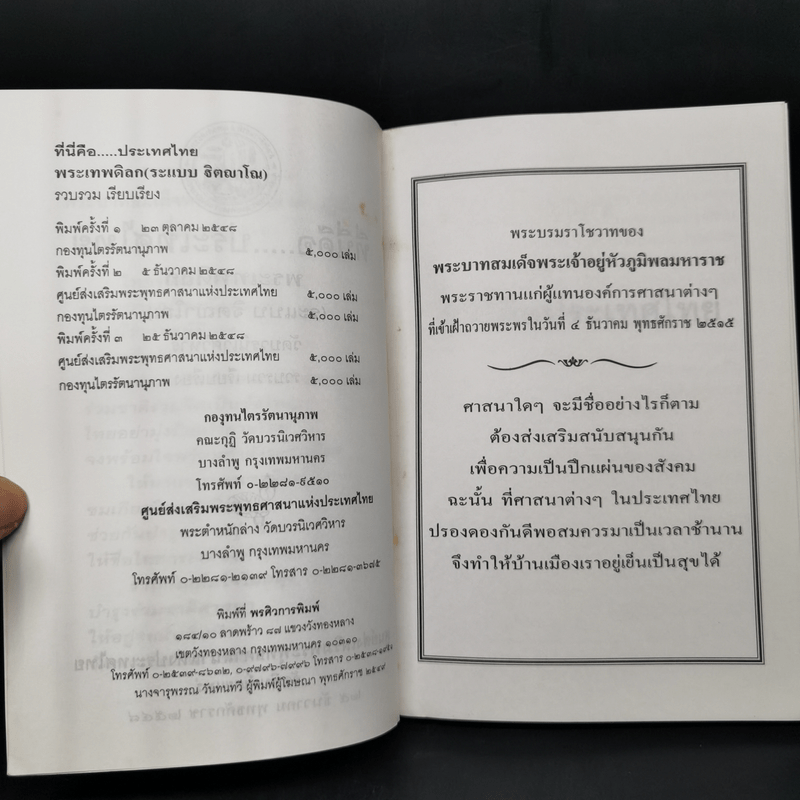 ที่นี่คือ.....ประเทศไทย
พระเทพดิลก(ระแบบ ฐิตญาโณ)
รวบรวม เรียบเรียง
พิมพ์ครั้งที่ ๑ ๒๓ ตุลาคม ๒๕๔๘
กองทุนไตรรัตนานุภาพ ๕,๐๐๐ เล่ม
พิมพ์ครั้งที่ ๒ ๕ ธันวาคม ๒๕๔๘
ศูนย์ส่งเสริมพระพุทธศาสนาแห่งประเทศไทย ๕,๐๐๐ เล่ม
กองทุนไตรรัตนานุภาพ ๕,๐๐๐ เล่ม
พิมพ์ครั้งที่ ๓ ๒๕ ธันวาคม ๒๕๔๘
ศูนย์ส่งเสริมพระพุทธศาสนาแห่งประเทศไทย ๕,๐๐๐ เล่ม
กองทุนไตรรัตนานุภาพ ๕,๐๐๐ เล่ม
กองทุนไตรรัตนานุภาพ
คณะกุฏิ วัดบวรนิเวศวิหาร
บางลำพู กรุงเทพมหานคร
โทรศัพท์ ๐-๒๒๘๑-๙๕๑๐
ศูนย์ส่งเสริมพระพุทธศาสนาแห่งประเทศไทย
พระตำหนักล่าง วัดบวรนิเวศวิหาร
บางลำพู กรุงเทพมหานคร
โทรศัพท์ ๐-๒๒๘๑-๒๑๓๙ โทรสาร ๐-๒๒๘๑-๓๖๘๕
พิมพ์ที่ พรศิวการพิมพ์
๑๘๔/๑๐ ลาดพร้าว ๘๗ แขวงวังทองหลาง
เขตวังทองหลาง กรุงเทพมหานคร ๑๐๓๑๐
โทรศัพท์ ๐-๒๕๓๙-๘๖๓๒, ๐-๙๗๙๖-๘๙๙๖ โทรสาร
นางจารุพรรณ วันทนทวี ผู้พิมพ์ผู้โฆษณา พุทธศักราช ๒๕๔๙
พระบรมราโชวาทของ
พระบาทสมเด็จพระเจ้าอยู่หัวภูมิพลมหาราช
พระราชทานแก่ผู้แทนองค์การศาสนาต่างๆ
ที่เข้าเฝ้าถวายพระพรในวันที่ ๔ ธันวาคม พุทธศักราช ๒๕๑๕
ศาสนาใดๆ จะมีชื่ออย่างไรก็ตาม
ต้องส่งเสริมสนับสนุนกัน
เพื่อความเป็นปึกแผ่นของสังคม
ฉะนั้น ที่ศาสนาต่างๆ ในประเทศไทย
ปรองดองกันดีพอสมควรมาเป็นเวลาช้านาน
จึงทำให้บ้านเมืองเราอยู่เย็นเป็นสุขได้